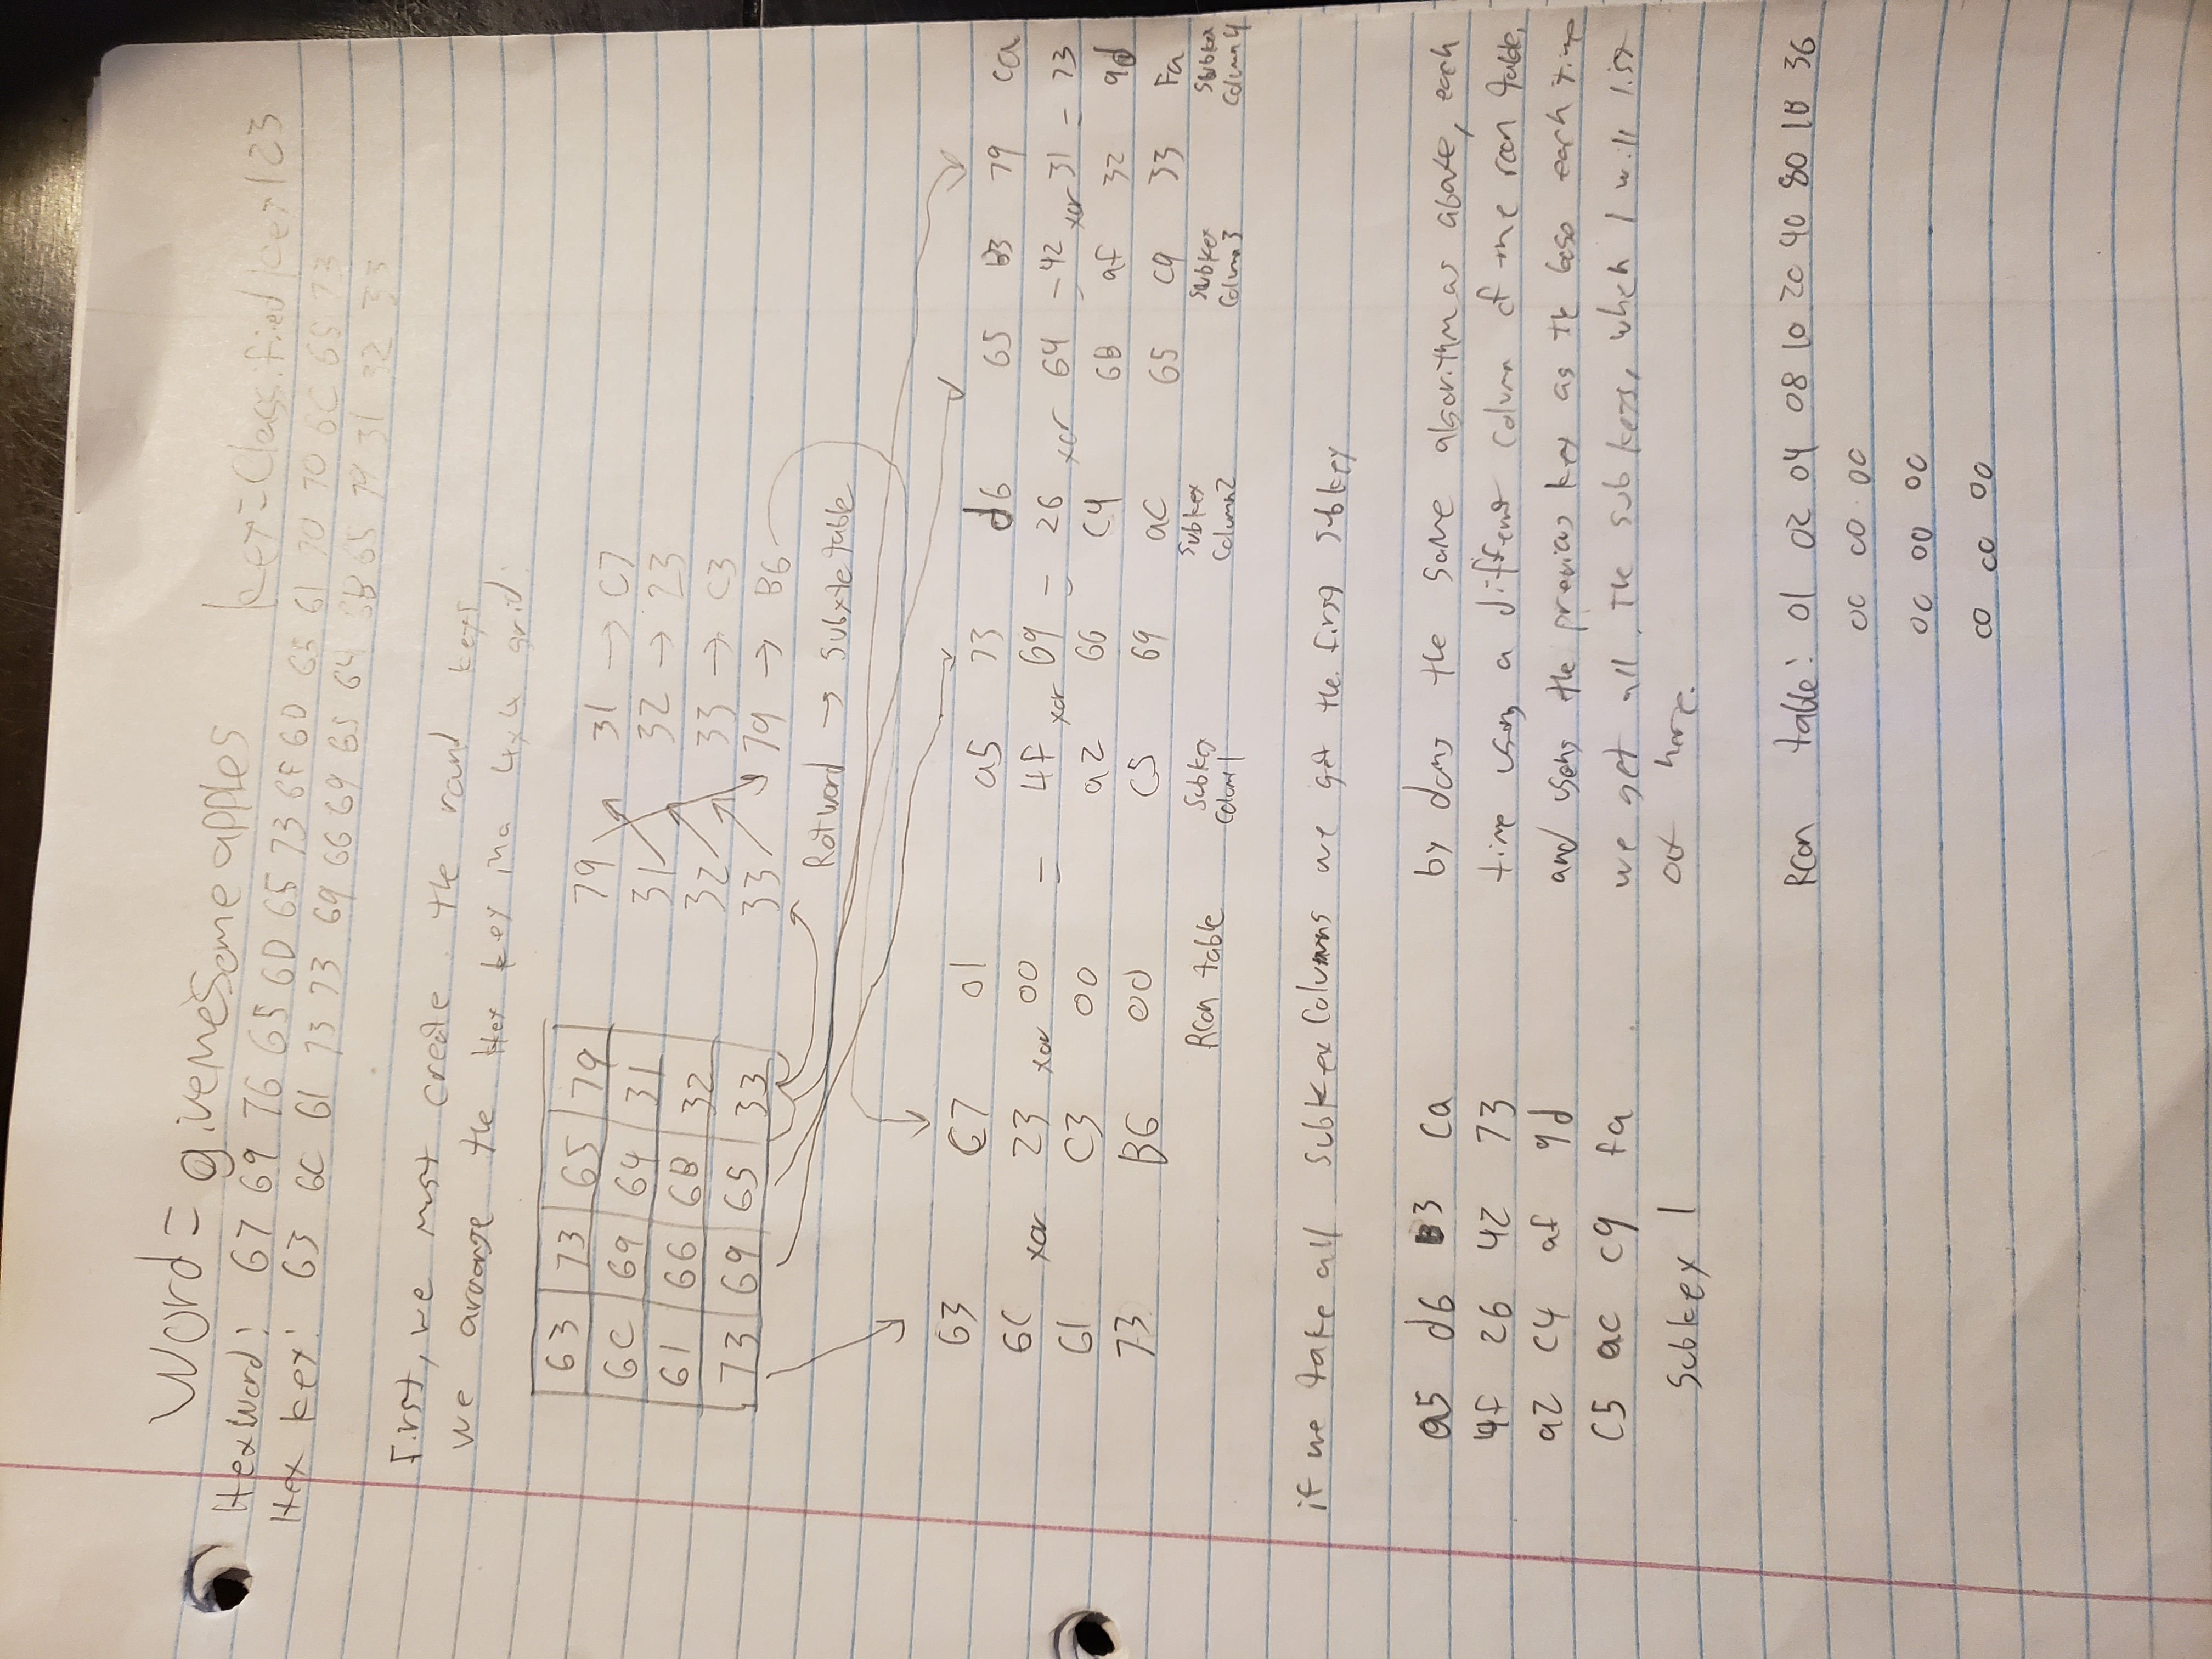 Word = givemesomeapples
key = Classifiedkey123
Hexword: 67 69 76 65 6D 65 73 6F 6D 65 61 70 70 6C 65 73
Hex key: 63 6C 61 73 73 69 66 69 65 64 6B 65 79 31 32 33
First, we must create the round keys
we arrange the Hex key in a 4x4 grid:
63 73 65 79
6C 69 64 31
61 66 6B 32
73 69 65 33
79 31 → C7
31 32 → 23
32 33 → C3
33 79 → B6
Rotword → Subyte table
63 C7 01 a5 73 d6 65 B3 79 ca
6C xor 23 xor 00 = 4F xor 69 = 26 xor 64 = 42 xor 31 = 73
61 C3 00 a2 66 C4 6B af 32 9d
73 B6 00 C5 69 ac 65 c9 33 Fa
Rcon table
Subkey Column 1
Subkey Column 2
Subkey Column 3
Subkey Column 4
if we take all subkey Columns we get the first subkey
a5 d6 B3 ca
4f 26 42 73
a2 c4 af 9d
C5 ac c9 fa
Subkey 1
by doing the same algorithm as above, each
time using a different column of the rcon table,
and using the previous key as the base each time
we get all the sub keys, which I will list
out here.
Rcon table: 01 02 04 08 10 20 40 80 1B 36
00 00 00
00 00 00
00 00 00